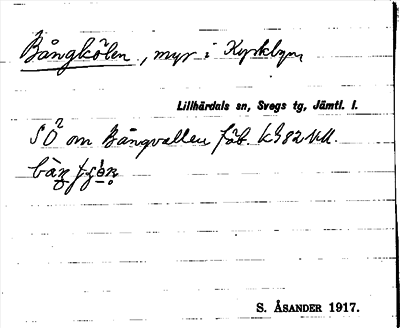 Bångkölen, myr i Kyrkbyn
Lillhärdals sn, Svegs tg, Jämtl. l.
SÖ om Bångvallen fäb.
S. ÅSANDER 1917.